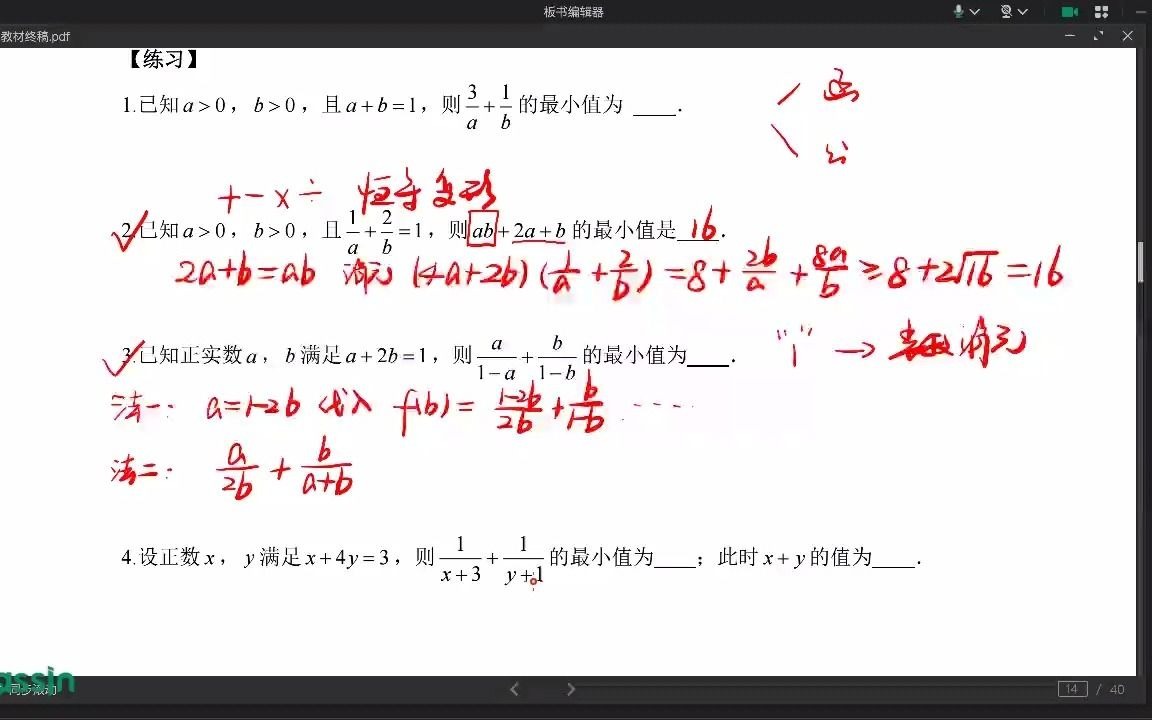 板书编辑器
教材终稿.pdf
【练习】
1.已知a>0，b>0，且a+b=1，则3/a+1/b的最小值为____．
函
+-×÷ 恒等变形
2.已知a>0，b>0，且1/a+2/b=1，则ab+2a+b的最小值是 16．
2a+b=ab 消元 (4a+2b)(1/a+2/b)=8+2b/a+8a/b≥8+2√16=16
3.已知正实数a，b满足a+2b=1，则a/(1-a)+b/(1-b)的最小值为____．
"1" → 消元
法一: a=1-2b 代入 f(b)=(1-2b)/2b+b/(1-b) ....
法二: a/2b+b/(a+b)
4.设正数x，y满足x+4y=3，则1/(x+3)+1/(y+1)的最小值为____；此时x+y的值为____．
assin
同步滚动
14 / 40